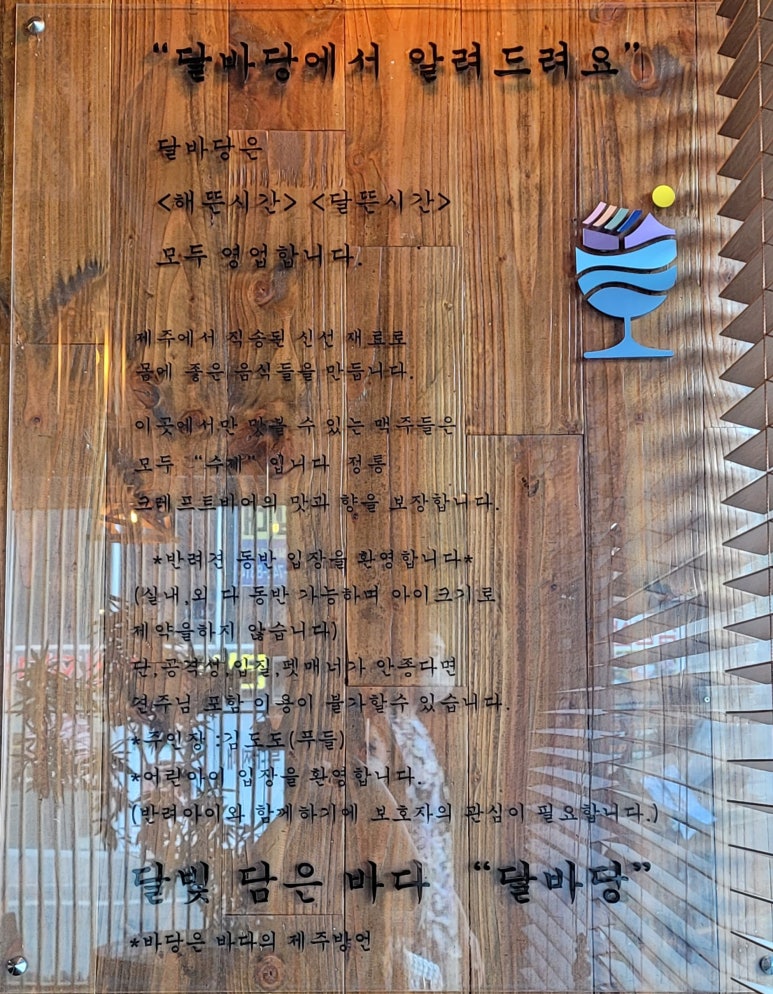 “달바당에서 알려드려요”
달바당은
<해뜬시간> <달뜬시간>
모두 영업합니다.
제주에서 직송된 신선 재료로
몸에 좋은 음식들을 만듭니다.
이곳에서만 맛볼 수 있는 맥주들은
모두 “수제” 입니다 정통
크레프트비어의 맛과 향을 보장합니다.
*반려견 동반 입장을 환영합니다*
(실내,외 다 동반 가능하며 아이크기로
제약을하지 않습니다)
단,공격성,입질,펫매너가 안좋다면
견주님 포함 이용이 불가할수 있습니다.
*주인장 :김도도(푸들)
*어린아이 입장을 환영합니다.
(반려아이와 함께하기에 보호자의 관심이 필요합니다.)
달빛 담은 바다 “달바당”
*바당은 바다의 제주방언